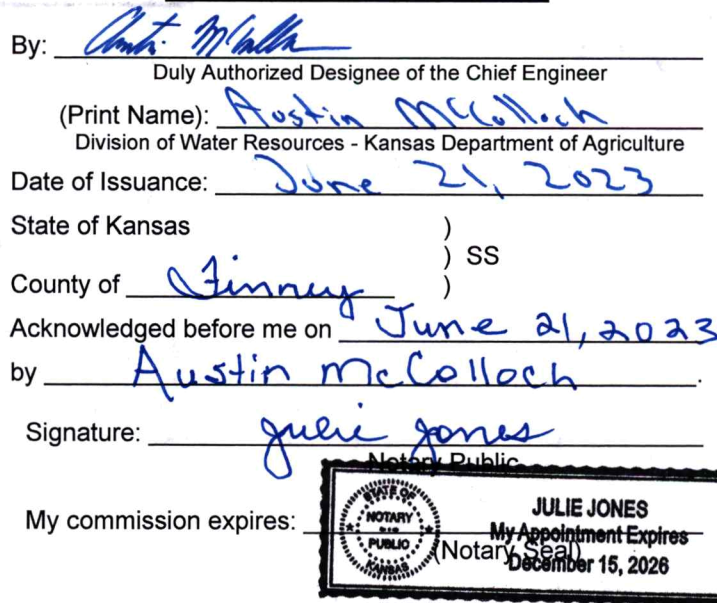 By: Austin McColloch
Duly Authorized Designee of the Chief Engineer
(Print Name): Austin McColloch
Division of Water Resources - Kansas Department of Agriculture
Date of Issuance: June 21, 2023
State of Kansas )
) SS
County of Finney )
Acknowledged before me on June 21, 2023
by Austin McColloch.
Signature: Julie Jones
Notary Public
My commission expires:
(Notary Seal)
STATE OF
NOTARY
PUBLIC
KANSAS
JULIE JONES
My Appointment Expires
December 15, 2026